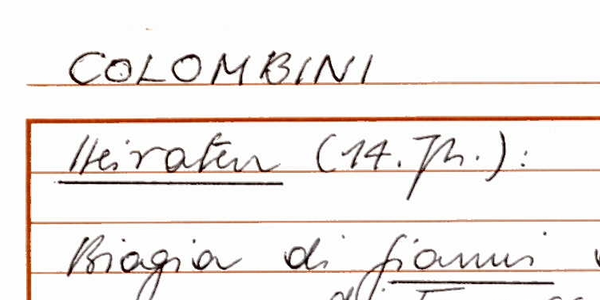 COLOMBINI
Heiraten (14. Jh.):
Biagia di Gianni
di